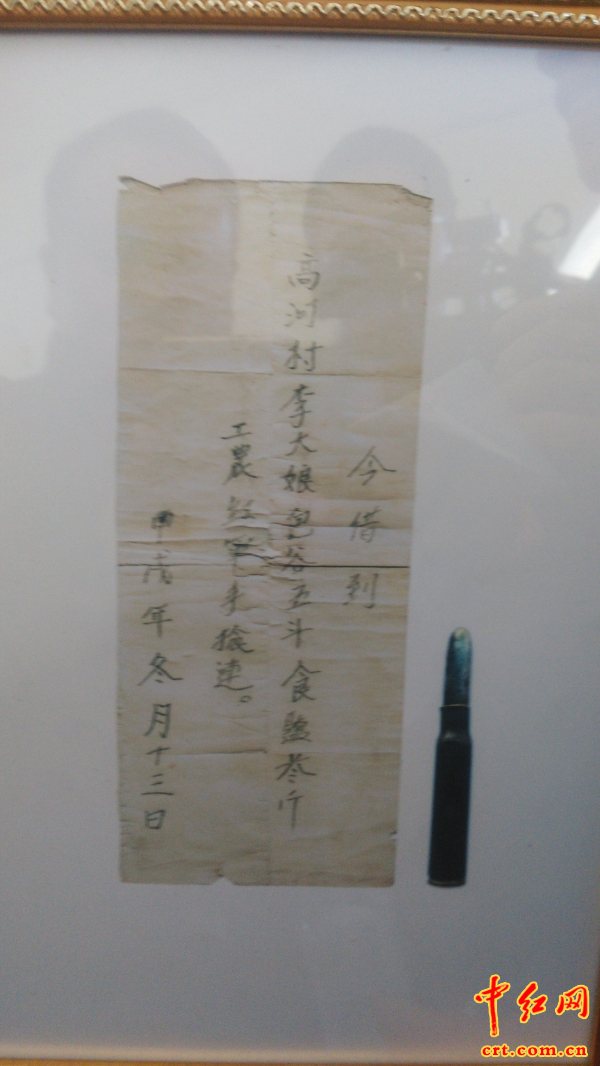 今借到
高河村李大娘包谷五斗食鹽叁斤
工農红軍手搶連。
甲戌年冬月十三日
中红网
crt.com.cn